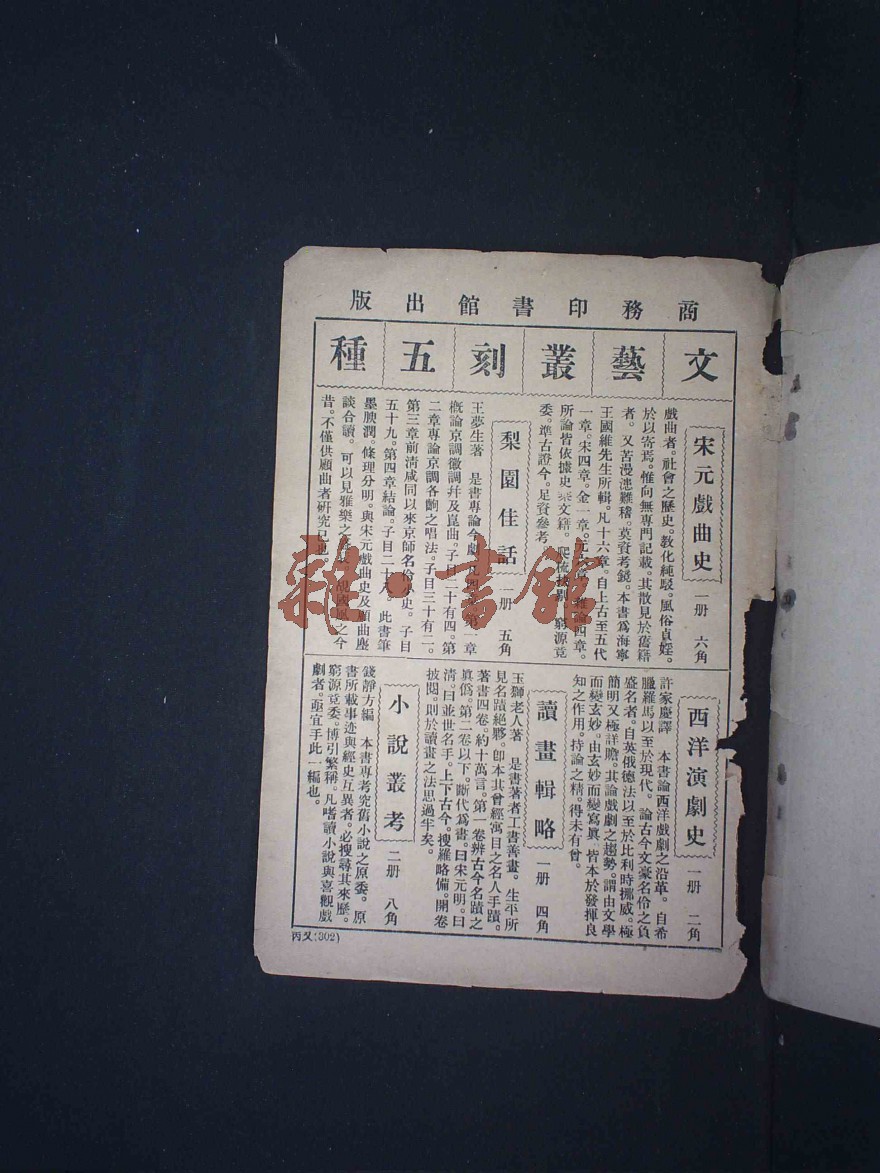 商務印書館出版
文藝叢刻五種
宋元戲曲史
一册 六角
戲曲者。社會之歷史。教化純駁。風俗貞婬。
於以寄焉。惟向無專門記載。其散見於舊籍
者。又苦漫漶難稽。莫資考鏡。本書爲海寧
王國維先生所輯。凡十六章。自上古至五代
一章。宋四章。金一章。元 雜論四章。
所論皆依據史 文籍。爬梳 剔。窮源竟
委。準古證今。足資參考
梨園佳話
一册 五角
王夢生著 是書專論今劇 第一章
概論京調徽調幷及崑曲。子目二十有四。第
二章專論京調各齣之唱法。子目三十有二。
第三章前清咸同以來京師名伶小史。子目
五十九。第四章結論。子目二十八。此書筆
墨腴潤。條理分明。與宋元戲曲史及顧曲塵
談合讀。可以見雅樂之 國 之今
昔。不僅供顧曲者研究已也。
西洋演劇史
一册 二角
許家慶譯 本書論西洋戲劇之沿革。自希
臘羅馬以至於現代。論古今文豪名伶之負
盛名者。自英俄德法以至於比利時挪威。極
簡明又極詳贍。其論戲劇之趨勢。謂由文學
而變玄妙。由玄妙而變寫眞。皆本於發揮良
知之作用。持論之精。得未有曾。
讀畫輯略
一册 四角
玉獅老人著 是書著者工書善畫。生平所
見名蹟絕夥。卽本其曾經寓目之名人手蹟。
著書四卷。約十萬言。第一卷辨古今名蹟之
眞僞。第二卷以下。斷代爲書。曰宋元明。曰
清。曰並世名手。上下古今。搜羅略備。開卷
披閱。則於讀畫之法思過半矣。
小說叢考
二册 八角
錢靜方編 本書專考究舊小說之原委。原
書所載事迹與經史互異者。必搜尋其來歷。
窮源竟委。博引繁稱。凡嗜讀小說與喜觀戲
劇者。亟宜手此一編也。
丙又(302)
雜·書館